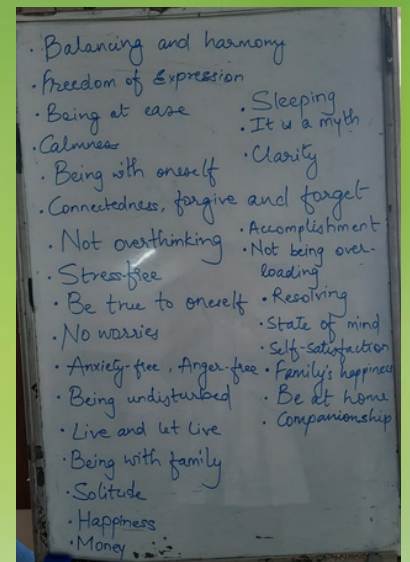 · Balancing and harmony
· Freedom of Expression
· Being at ease
· Calmness
· Being with oneself
· Connectedness, forgive and forget
· Not overthinking
· Stress-free
· Be true to oneself
· No worries
· Anxiety-free, Anger-free
· Being undisturbed
· Live and let live
· Being with family
· Solitude
· Happiness
· Money
· Sleeping
· It is a myth
· Clarity
· Accomplishment
· Not being over-
loading
· Resolving
· State of mind
· Self-satisfaction
· Family's happiness
· Be at home
· Companionship